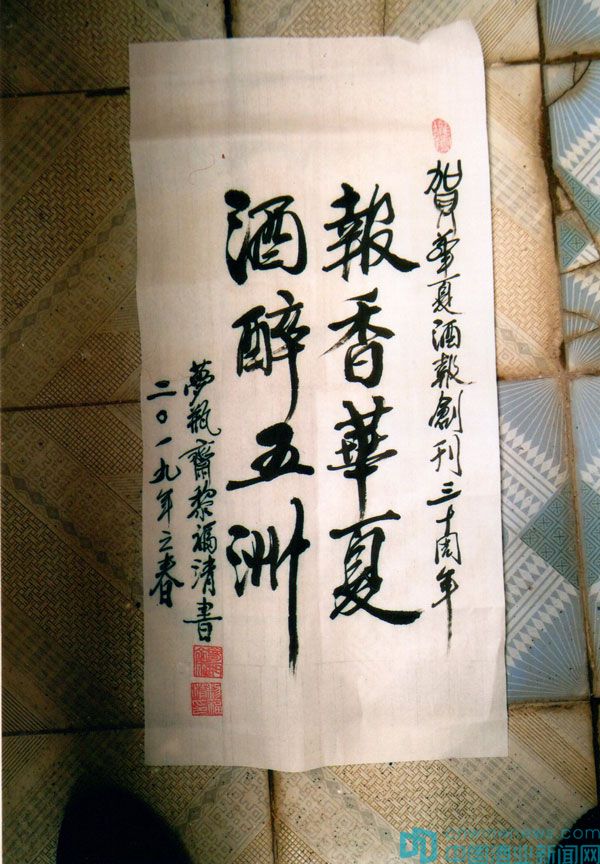 賀華夏酒報創刊三十周年
報香華夏
酒醉五洲
夢瓶齋黎福清書
二〇一九年之春
cnwinenews.com
中国酒业新闻网